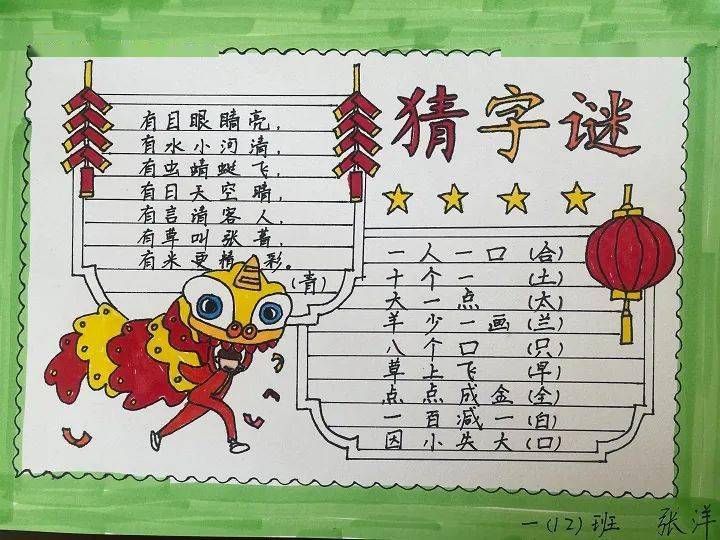 猜字谜
有目眼睛亮，
有水小河清，
有虫蜻蜓飞，
有日天空晴，
有言请客人，
有草叫张菁，
有米更精彩。
(青)
一人一口(合)
十个一(土)
大一点(太)
羊少一画(兰)
八个口(只)
草上飞(早)
点点成金(全)
一百减一(白)
因小失大(口)
一(12)班 张洋